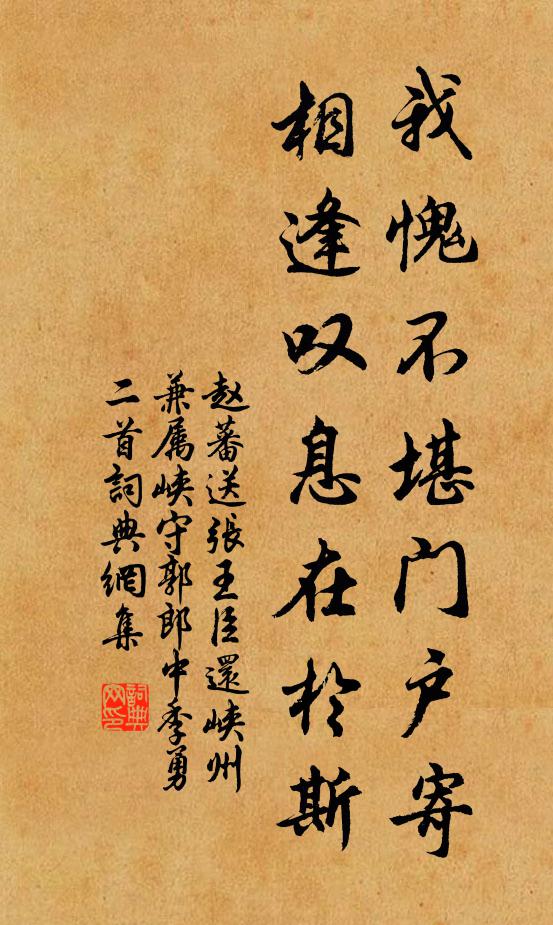 我愧不堪门户寄
相逢叹息在於斯
赵蕃送張王臣還峡州
兼属峡守郭郎中季勇
二首詞典網集
詞典
网印